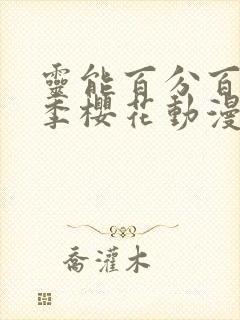 靈能百分百
季櫻花動漫
喬灌木